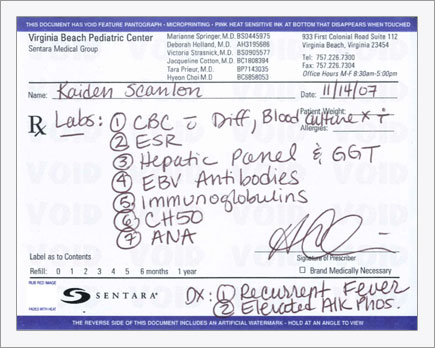 THIS DOCUMENT HAS VOID FEATURE PANTOGRAPH - MICROPRINTING - PINK HEAT SENSITIVE INK AT BOTTOM THAT DISAPPEARS WHEN HEATED
Virginia Beach Pediatric Center
Sentara Medical Group
Marianne Springer, M.D. BS0445975
Deborah Holland, M.D. AH3195686
Victoria Strasnick, M.D. BS0905577
Jacqueline Cotton, M.D. BC1808394
Tara Prieur, M.D. BP4713035
Hyeon Choi M.D. BC6858053
933 First Colonial Road Suite 112
Virginia Beach, Virginia 23454
Tel: 757.226.7300
Fax: 757.226.7304
Office Hours M-F 8:30am-5:00pm
Name: Kaiden Scanlon Date: 11/14/07
Patient Weight:
Allergies:
Rx Labs: ① CBC c̄ Diff, Blood Culture x i
② ESR
③ Hepatic Panel & GGT
④ EBV Antibodies
⑤ immunoglobulins
⑥ CH50
⑦ ANA
Label as to Contents
Signature of Prescriber
Refill: 0 1 2 3 4 5 6 months 1 year
Brand Medically Necessary
RUB RED IMAGE
FADES WITH HEAT
SENTARA®
DX: ① Recurrent Fever
② Elevated Alk Phos.
THE REVERSE SIDE OF THIS DOCUMENT INCLUDES AN ARTIFICIAL WATERMARK - HOLD AT AN ANGLE TO VIEW